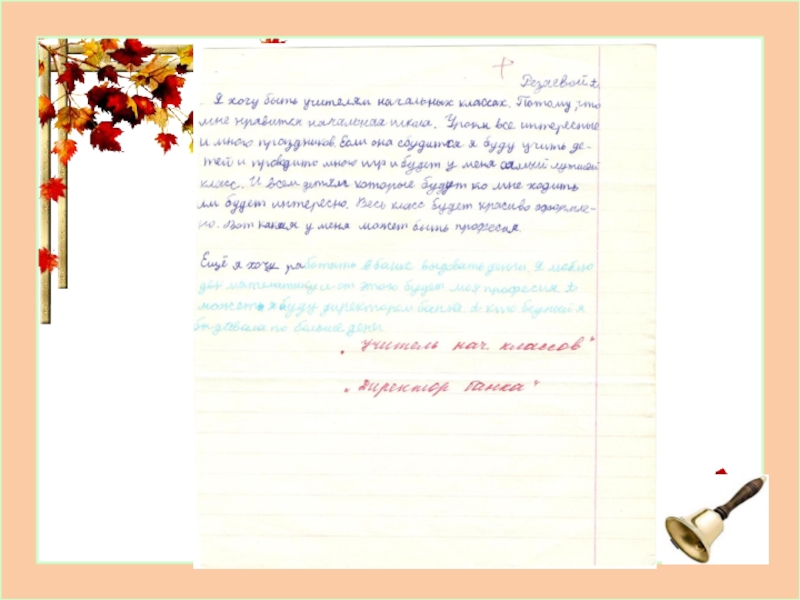 Резаевой А.
Я хочу быть учителям начальных классах. Потому, что
мне нравится начальная школа. Уроки все интересные
и много праздников. Если она сбудится я буду учить де-
тей и проводить много игр и будет у меня самый лутший
класс. И всем детям которые будут ко мне ходить
им будет интересно. Весь класс будет красиво оформле-
но. Вот какая у меня может быть професия.
Ещё я хочу работать в банке выдовать денги. Я люблю
математику и от этого будет моя професия а
может я буду директором банка. А кто бедный я
бы довала по больше денег
„Учитель нач. классов"
„Директор банка"